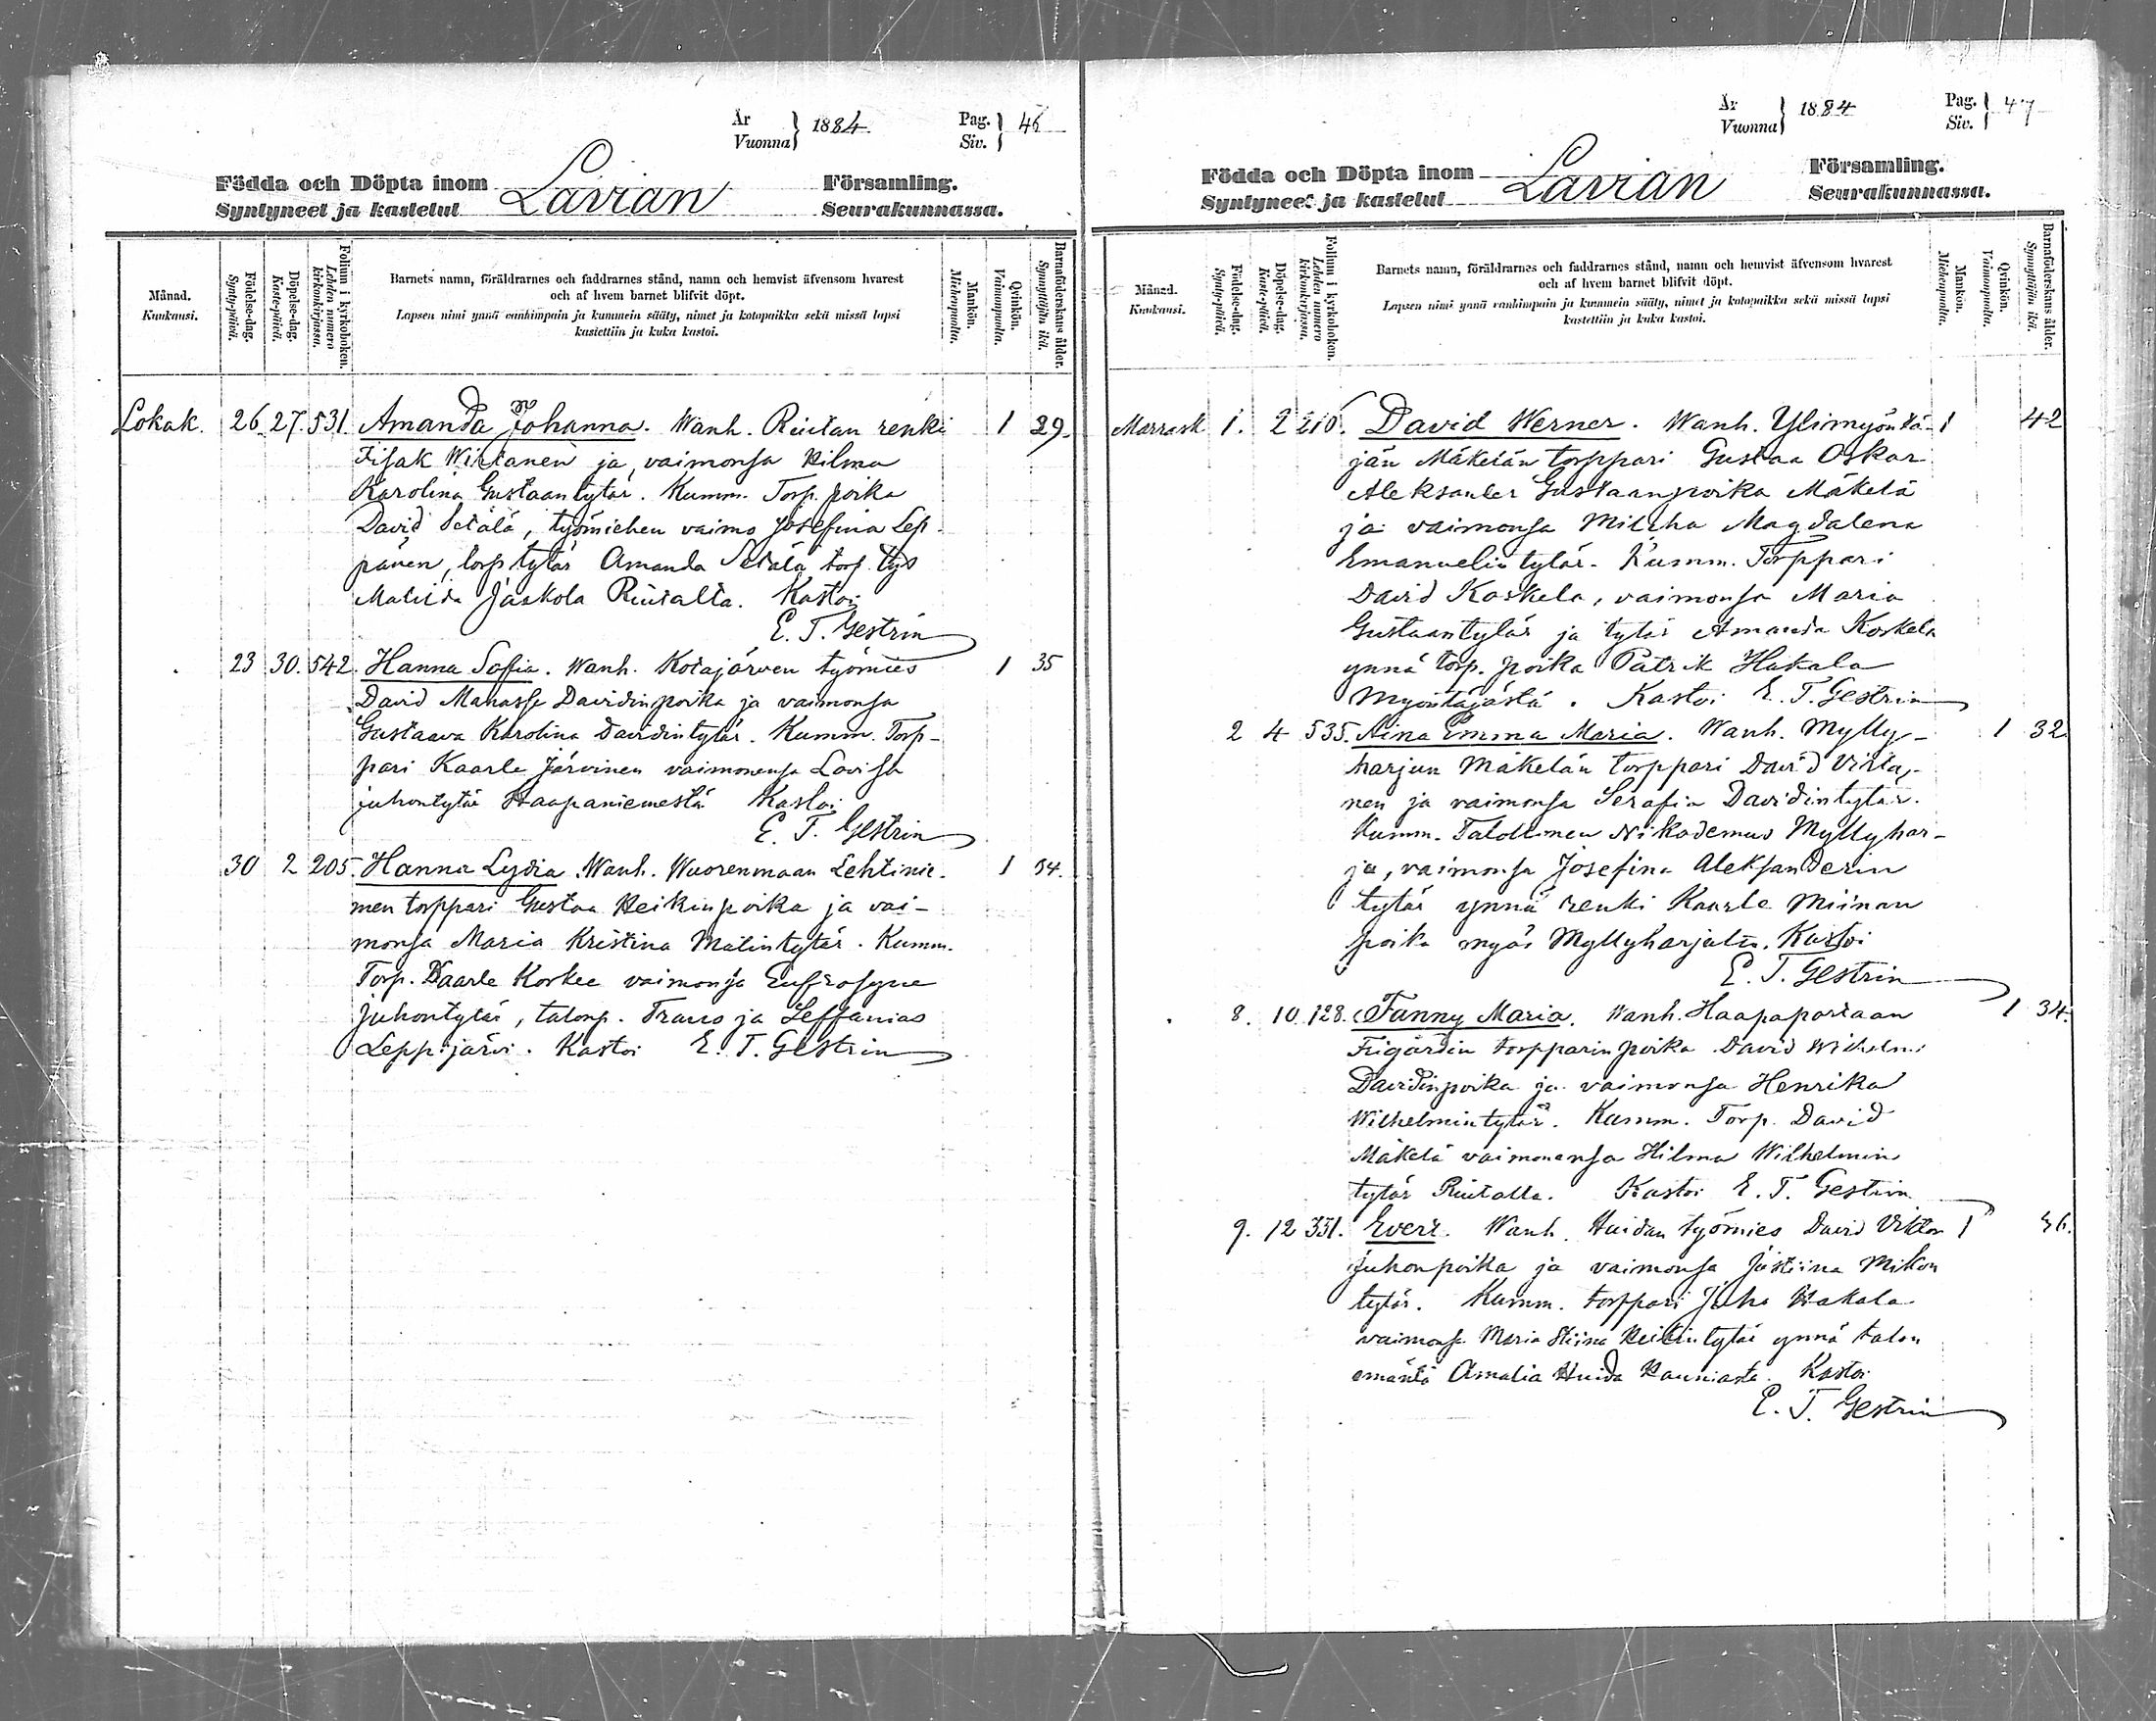 År
Vuonna } 1884. Pag.
Siv. } 46
Födda och Döpta inom Lavian Församling.
Syntyneet ja kastetut Seurakunnassa.
Månad.
Kuukausi.
Födelse-dag.
Synty-päivä.
Döpelse-dag.
Kaste-päivä.
Folium i kyrkoboken.
Lehden numero
kirkonkirjassa.
Barnets namn, föräldrarnes och faddrarnes stånd, namn och hemvist äfvensom hvarest
och af hvem barnet blifvit döpt.
Lapsen nimi ynnä vanhimpain ja kummein sääty, nimet ja kotopaikka sekä missä lapsi
kastettiin ja kuka kastoi.
Mankön.
Miehenpuolta.
Qvinkön.
Vaimonpuolta.
Barnaföderskans ålder.
Synnyttäjän ikä.
Lokak. 26. 27. 531. Amanda Johanna. Wanh. Riutan renki 1 29.
Iisak Wirtanen ja vaimonsa Hilma
Karolina Gustaantytär. Kumm. Torp. poika
David Setälä, työmiehen vaimo Josefina Lep-
pänen, torp tytär Amanda Setälä torp. tys
Matilda Jaskola Riutalta. Kastoi
E. T. Gestrin
23 30. 542. Hanna Sofia. Wanh. Kotajärven työmies 1 35
David Manasse Davidinpoika ja vaimonsa
Gustaava Karolina Davidintytär. Kumm. Torp-
pari Kaarle Järvinen vaimonensa Lovisa
juhontytär Haapaniemestä Kastoi
E. T. Gestrin
30 2 205. Hanna Lydia. Wanh. Wuorenmaan Lehtinie- 1 34.
men torppari Gustaa Heikinpoika ja vai-
monsa Maria Kristina Matintytär. Kumm.
Torp. Kaarle Korkee vaimonsa Eufrosyne
Juhontytär, talonp. Frans ja Seffanias
Leppijärvi. Kastoi E. T. Gestrin
År
Vuonna } 1884 Pag.
Siv. } 47
Födda och Döpta inom Lavian Församling.
Syntyneet ja kastetut Seurakunnassa.
Månad.
Kuukausi.
Födelse-dag.
Synty-päivä.
Döpelse-dag.
Kaste-päivä.
Folium i kyrkoboken.
Lehden numero
kirkonkirjassa.
Barnets namn, föräldrarnes och faddrarnes stånd, namn och hemvist äfvensom hvarest
och af hvem barnet blifvit döpt.
Lapsen nimi ynnä vanhimpain ja kummein sääty, nimet ja kotopaikka sekä missä lapsi
kastettiin ja kuka kastoi.
Mankön.
Miehenpuolta.
Qvinkön.
Vaimonpuolta.
Barnaföderskans ålder.
Synnyttäjän ikä.
Marrask 1. 2 210. David Werner. Wanh. Ylimyöntä- 1 42
jän Mäkelän torppari Gustaa Oskar
Aleksander Gustaanpoika Mäkelä
ja vaimonsa Magdalena
Emanuelin tytär. Kumm. Torppari
David Koskela, vaimonsa Maria
Gustaantytär ja tytär Amanda Koskela
ynnä torp. poika Patrik Hakala
Myöntäjästä. Kastoi E. T. Gestrin
2 4 535. Aina Emma Maria. Wanh. Mylly- 1 32.
harjun Mäkelän torppari David Virta-
nen ja vaimonsa Serafia Davidintytär.
Kumm. Talollinen Nikodemus Myllyhar-
ju, vaimonsa Josefina Aleksanderin
tytär ynnä renki Kaarle Miinan
poika myös Myllyharjulta. Kastoi
E. T. Gestrin
8. 10. 128. Fanny Maria. Wanh. Haapaportaan 1 34.
Frigårdin torpparinpoika David Wilhelmi
Davidinpoika ja vaimonsa Henrika
Wilhelmintytär. Kumm. Torp. David
Mäkelä vaimonensa Hilma Wilhelmin
tytär Riutalta. Kastoi E. T. Gestrin
9. 12 331. Evert. Wanh. Huidan työmies David Viktor 1 36.
Juhonpoika ja vaimonsa Justiina Mikon
tytär. Kumm. torppari Juho Hakala
vaimonsa Maria Stiina Heikintytär ynnä talon
emäntä Amalia Huida Kauniasta. Kastoi
E. T. Gestrin